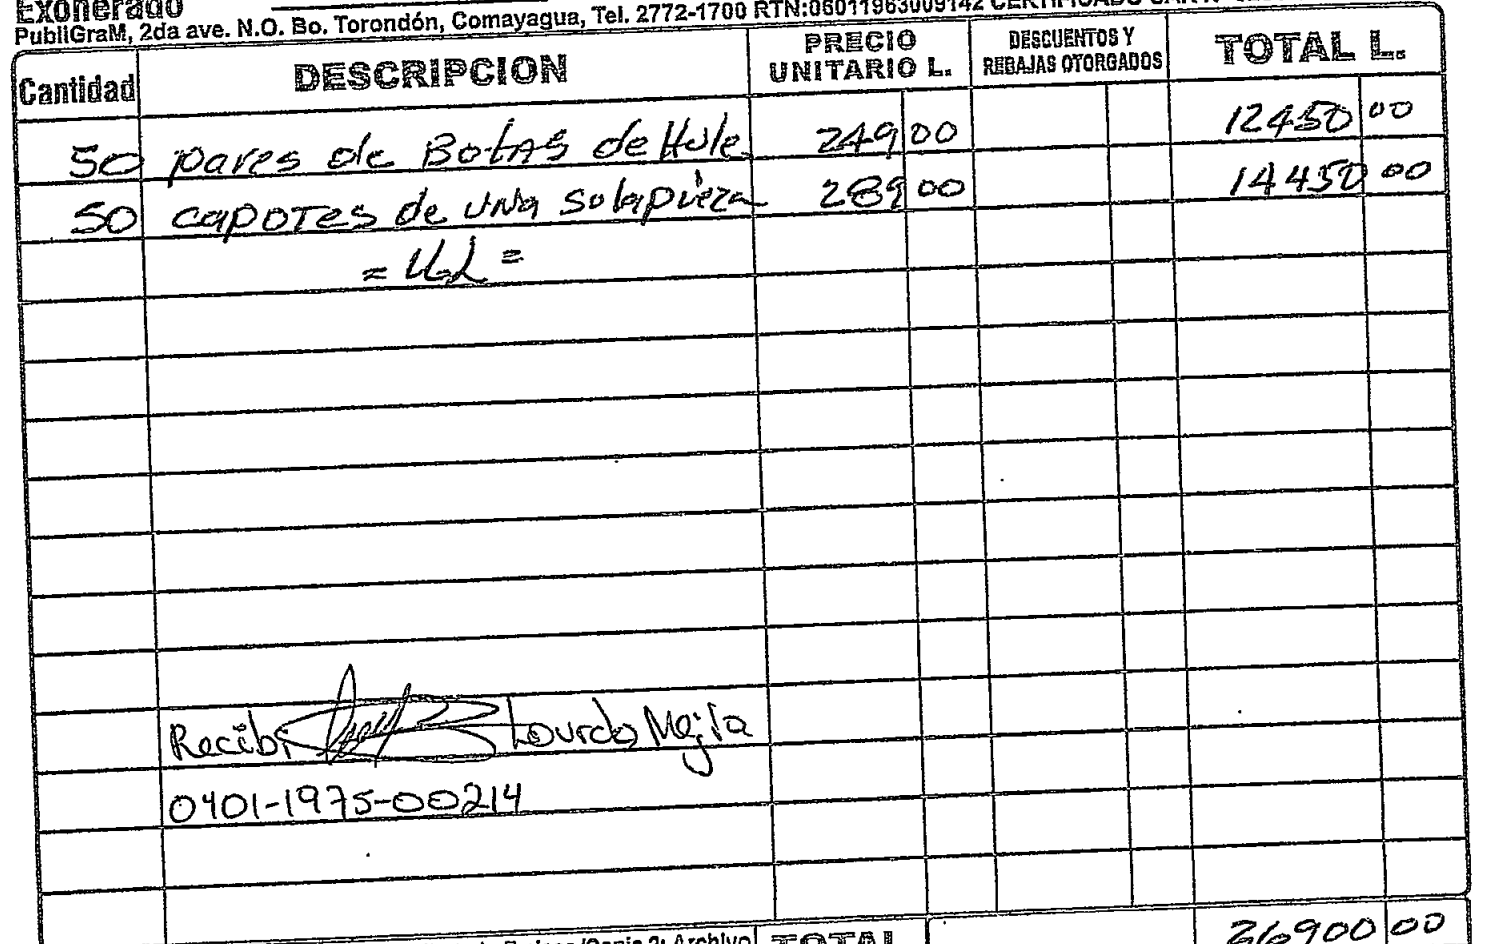 Exonerado
PubliGraM, 2da ave. N.O. Bo. Torondón, Comayagua, Tel. 2772-1700 RTN:06011963009142 CERTIFICADO
Cantidad DESCRIPCION PRECIO UNITARIO L. DESCUENTOS Y REBAJAS OTORGADOS TOTAL L.
50 pares de Botas de Hule 249 00 12450 00
50 capotes de una sola pieza 289 00 14450 00
= U.L =
Recibi Lourdes Mejía
0401-1975-00214
2: Archivo TOTAL 26900 00